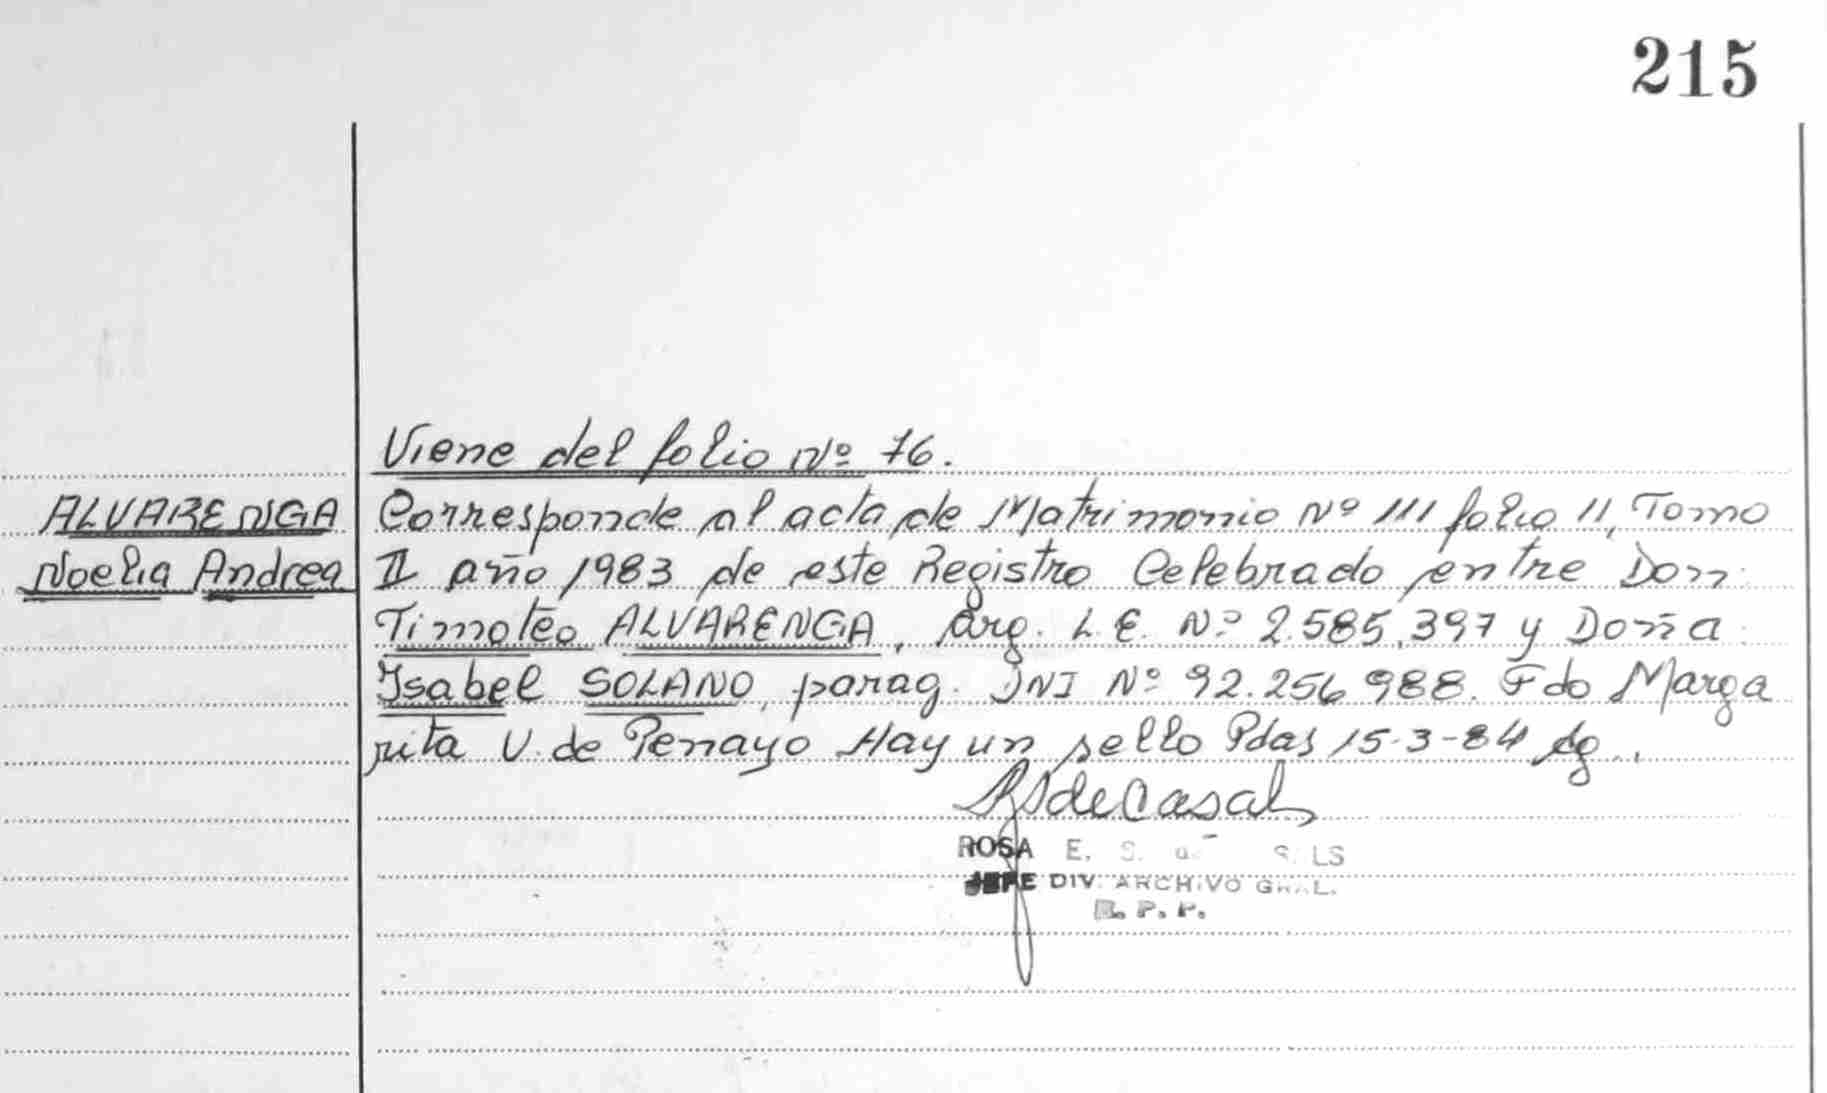 215
Viene del folio Nº 76.
ALVARENGA
Noelia Andrea
Corresponde al acta de Matrimonio Nº 111 folio 11, Tomo
II año 1983 de este Registro Celebrado entre Don
Timoteo ALVARENGA, Arg. L.E. Nº 2.585.397 y Doña
Ysabel SOLANO, parag. DNI Nº 92.256.988. Fdo Marga
rita V. de Penayo Hay un sello Pdas 15-3-84
deCasal
ROSA E. S.
JEFE DIV. ARCHIVO GRAL.
R. P. P.